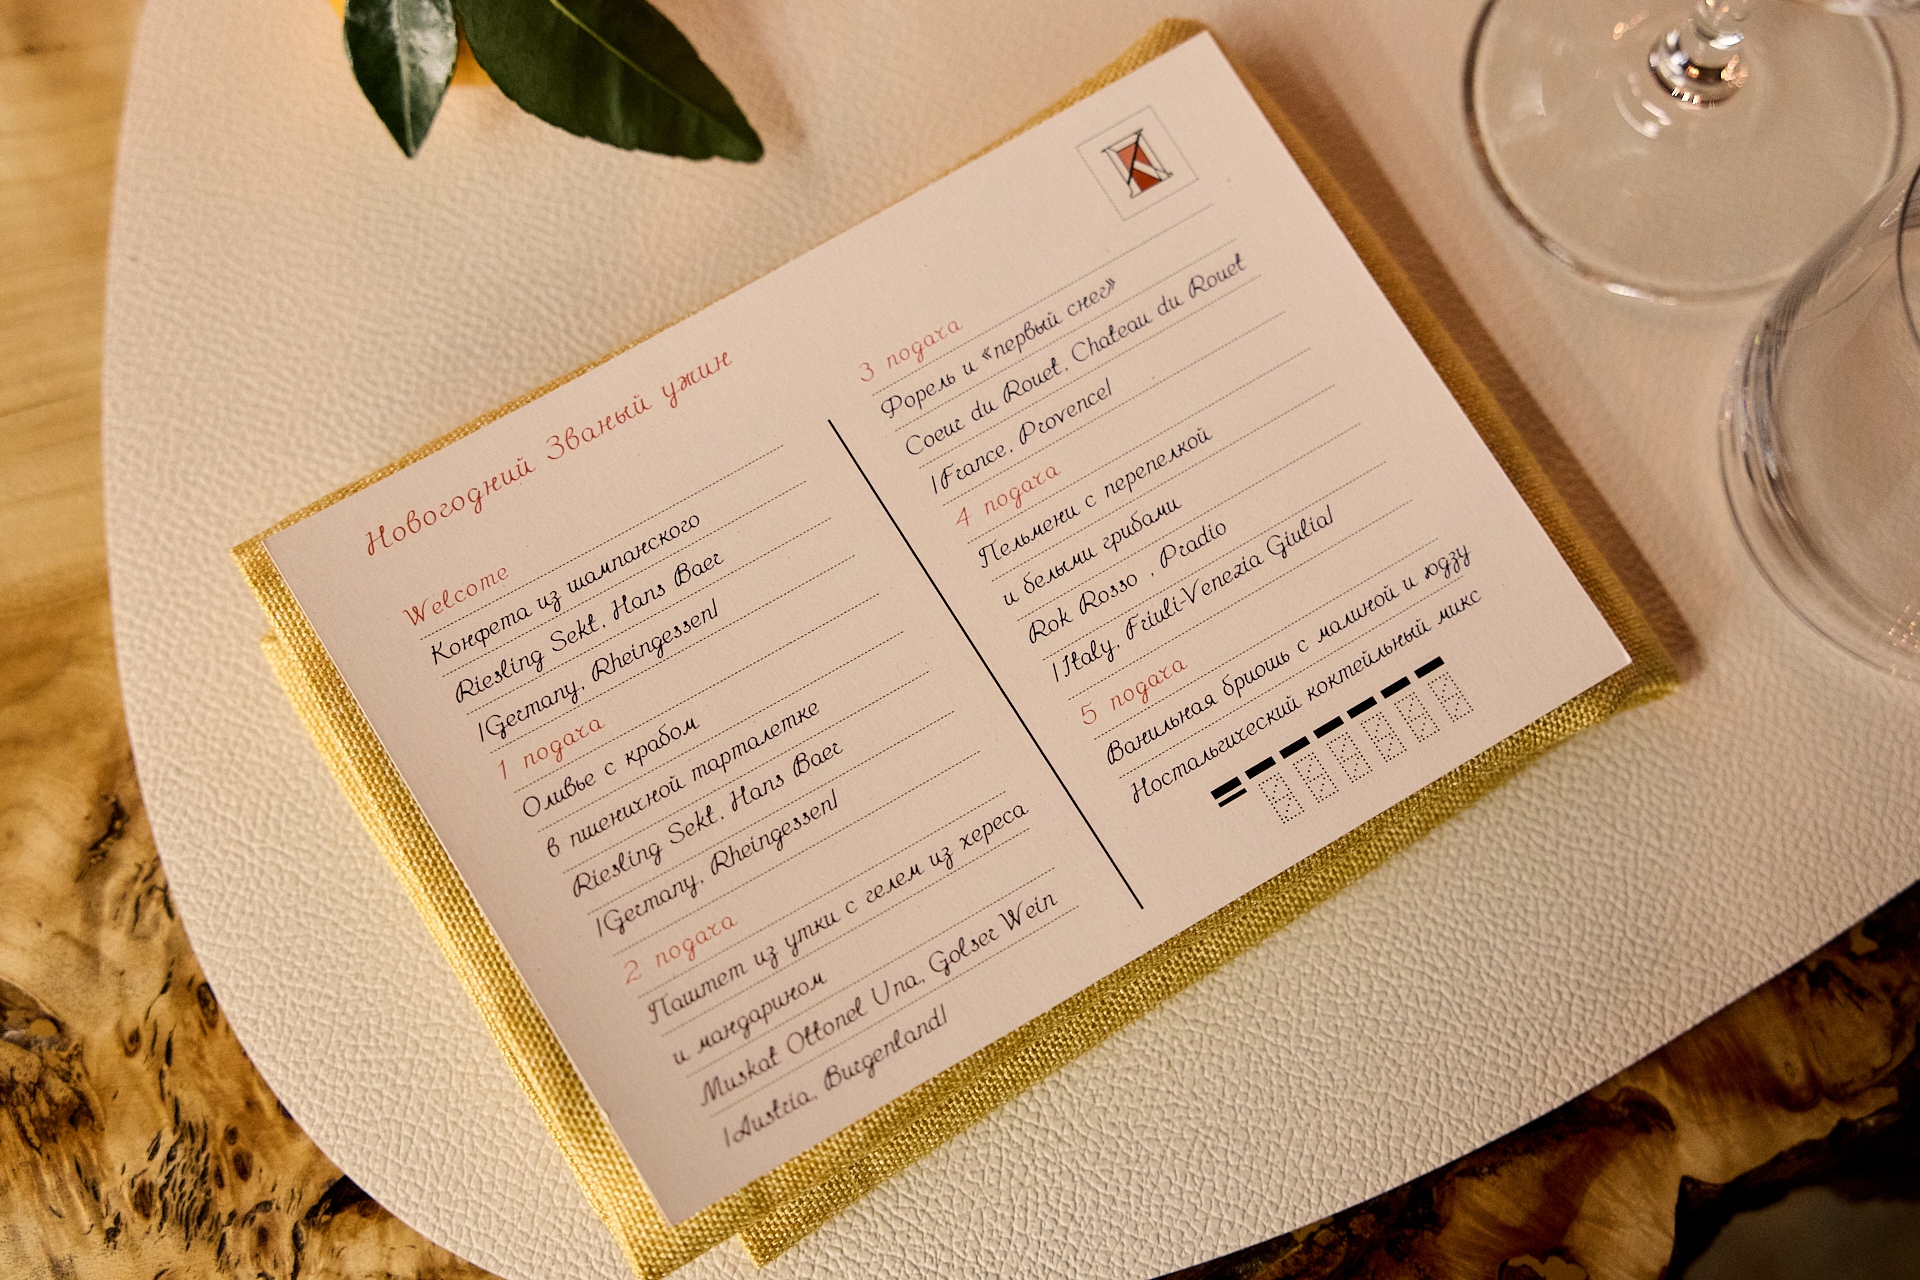 Новогодний Званый ужин
Welcome
Конфета из шампанского
Riesling Sekt, Hans Baer
/Germany, Rheingessen/
1 подача
Оливье с крабом
в пшеничной тарталетке
Riesling Sekt, Hans Baer
/Germany, Rheingessen/
2 подача
Паштет из утки с гелем из хереса
и мандарином
Muskat Ottonel Una, Golser Wein
/Austria, Burgenland/
3 подача
Форель и «первый снег»
Coeur du Rouet, Chateau du Rouet
/France, Provence/
4 подача
Пельмени с перепелкой
и белыми грибами
Rok Rosso , Pradio
/Italy, Friuli-Venezia Giulia/
5 подача
Ванильная бриошь с малиной и юдзу
Ностальгический коктейльный микс